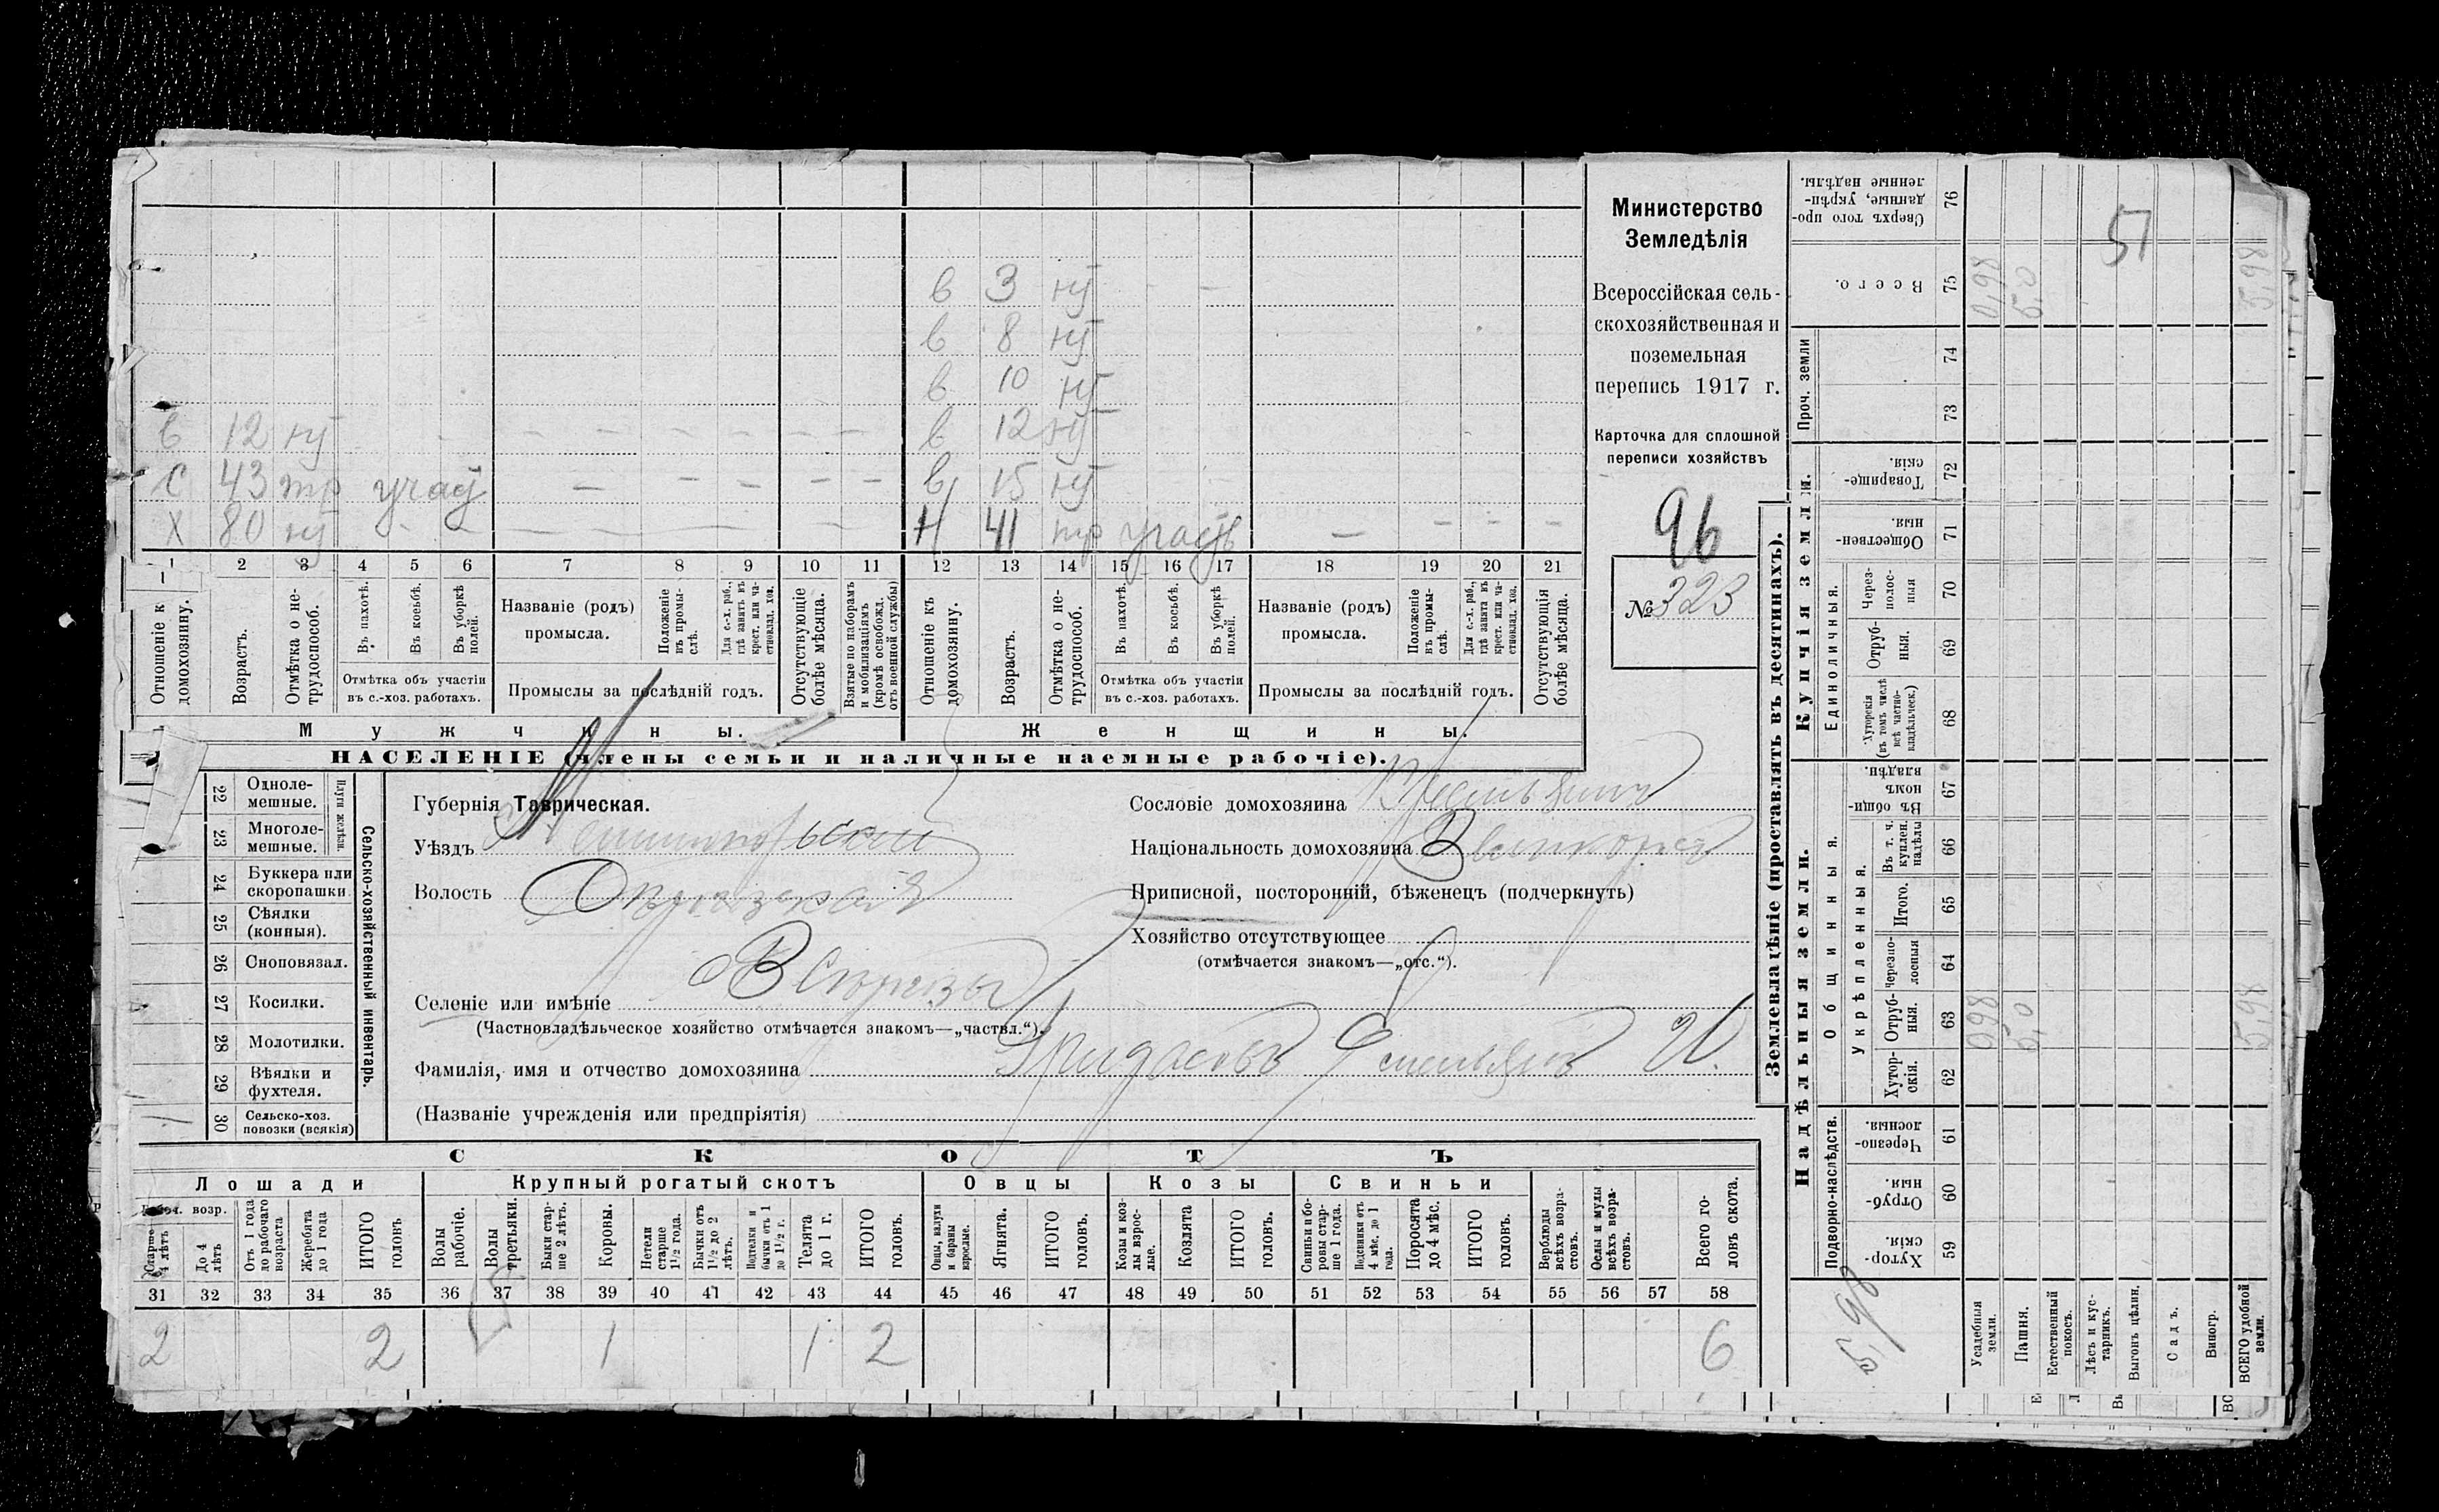 в 3 нј
в 8 нј
в 10 нј
в 12 нј - - - - - - - в 12 нј
с 43 тр учас - - - - - в 15 нј
х 80 нј - - - - - - Н 41 тр учас - - - -
1 2 3 4 5 6 7 8 9 10 11 12 13 14 15 16 17 18 19 20 21
Отношеніе к домохозяину.
Возрастъ.
Отмѣтка о не-трудоспособ.
Въ пахотѣ.
Въ косьбѣ.
Въ уборкѣ полей.
Отмѣтка объ участіи въ с.-хоз. работахъ.
Названіе (родъ) промысла.
Положеніе въ промы-слѣ.
Для с.-х. раб., гдѣ занятъ въ крест. или ча-стновлад. хоз.
Промыслы за послѣдній годъ.
Отсутствующіе болѣе мѣсяца.
Взятые по наборамъ и мобилизаціямъ (кромѣ освобожд. отъ военной службы)
Отношеніе къ домохозяину.
Возрастъ.
Отмѣтка о не-трудоспособ.
Въ пахотѣ.
Въ косьбѣ.
Въ уборкѣ полей.
Отмѣтка объ участіи въ с.-хоз. работахъ.
Названіе (родъ) промысла.
Положеніе въ промы-слѣ.
Для с.-х. раб., гдѣ занята въ крест. или ча-стновлад. хоз.
Промыслы за послѣдній годъ.
Отсутствующія болѣе мѣсяца.
Мужчины.
Женщины.
НАСЕЛЕНІЕ (члены семьи и наличные наемные рабочіе).
Министерство
Земледѣлія
Всероссійская сель-
скохозяйственная и
поземельная
перепись 1917 г.
Карточка для сплошной
переписи хозяйствъ
96
№ 323
22 Одноле-мешные.
23 Многоле-мешные.
Плуги желѣзн.
24 Буккера или скоропашки
25 Сѣялки (конныя).
26 Сноповязал.
27 Косилки.
28 Молотилки.
29 Вѣялки и фухтеля.
30 Сельско-хоз. повозки (всякія) 1
Сельско-хозяйственный инвентарь.
Губернія Таврическая.
Уѣздъ
Волость
Селеніе или имѣніе
(Частновладѣльческое хозяйство отмѣчается знакомъ—„частвл.“).
Фамилія, имя и отчество домохозяина
(Названіе учрежденія или предпріятія)
Сословіе домохозяина
Національность домохозяина Великороссъ
Приписной, посторонній, бѣженецъ (подчеркнуть)
Хозяйство отсутствующее
(отмѣчается знакомъ—„отс.“).
СКОТЪ
Лошади
Рабоч. возр.
Старше 4 лѣтъ
До 4 лѣтъ
Отъ 1 года до рабочаго возраста
Жеребята до 1 года
ИТОГО головъ
Крупный рогатый скотъ
Волы рабочіе.
Волы третьяки.
Быки стар-ше 2 лѣтъ.
Коровы.
Нетели старше 1½ года.
Бычки отъ 1½ до 2 лѣтъ.
Подтелки и бычки отъ 1 до 1½ г.
Телята до 1 г.
ИТОГО головъ.
Овцы
Овцы, валухи и бараны взрослые.
Ягнята.
ИТОГО головъ.
Козы
Козы и коз-лы взрос-лые.
Козлята
ИТОГО головъ.
Свиньи
Свиньи и бо-ровы стар-ше 1 года.
Подсвинки отъ 4 мѣс. до 1 года.
Поросята до 4 мѣс.
ИТОГО головъ.
Верблюды всѣхъ возра-стовъ.
Ослы и мулы всѣхъ возра-стовъ.
Всего го-ловъ скота.
31 32 33 34 35 36 37 38 39 40 41 42 43 44 45 46 47 48 49 50 51 52 53 54 55 56 57 58
2 2 1 1 2 6
Землевладѣніе (проставлять въ десятинахъ).
Купчія земли.
Надѣльныя земли.
Сверхъ того про-данные, укрѣп-ленные надѣлы. 76
Всего. 75 0,98 5,0 5,98
51
Проч. земли 74 73
Товарище-скія. 72
Обществен-ныя. 71
Единоличныя.
Через-полос-ныя 70
Отруб-ныя. 69
Хуторскія (въ томъ числѣ всѣ частно-владѣльческ.) 68
Общинныя.
Въ общин-номъ владѣн. 67
Укрѣпленныя.
Въ т. ч. куплен. надѣлы 66
Итого. 65
Черезпо-лосныя 64
Отруб-ныя. 63 0,98 5,0 5,98
Хутор-скія. 62
Подворно-наслѣдств.
Черезпо-лосныя. 61
Отруб-ныя. 60
Хутор-скія. 59
5,98
Усадебныя земли.
Пашня.
Естественный покосъ.
Лѣсъ и кус-тарникъ.
Выгонъ цѣлин.
Садъ.
Виногр.
ВСЕГО удобной земли.